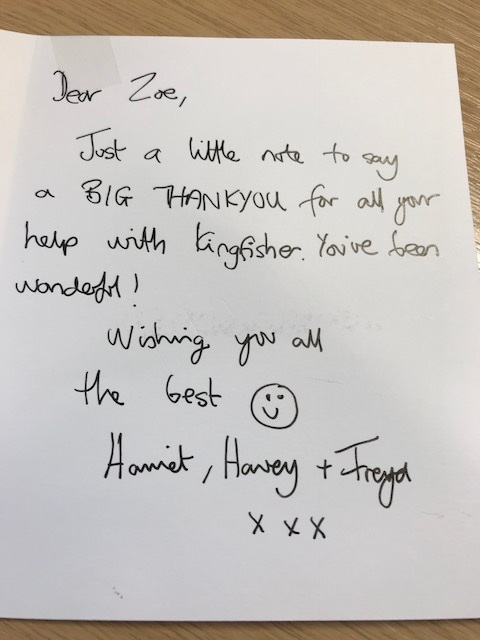 Dear Zoe,
Just a little note to say
a BIG THANKYOU for all your
help with Kingfisher. You've been
wonderful!
Wishing you all
the best
Harriet, Harvey + Freya
x x x